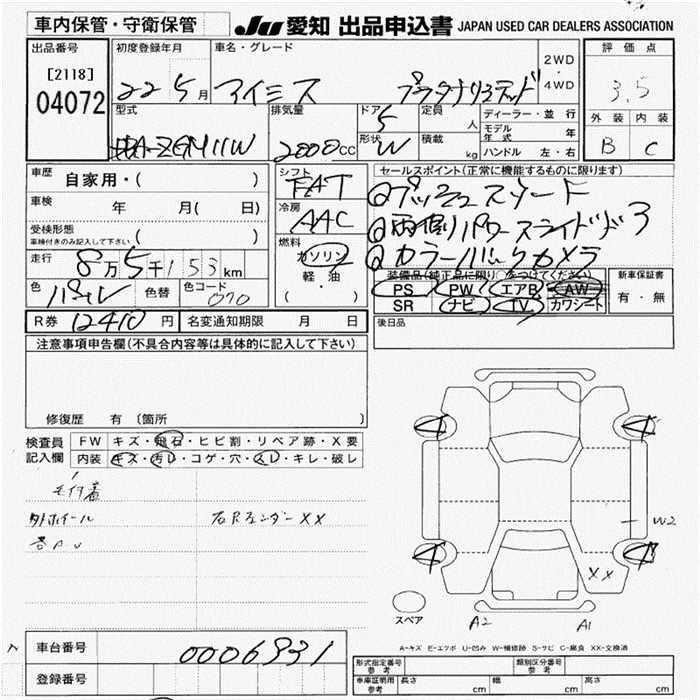 車内保管・守衛保管 JU 愛知 出品申込書 JAPAN USED CAR DEALERS ASSOCIATION
出品番号 初度登録年月 車名・グレード 2WD ・ 4WD 評価点
[2118] 22 5月 アイシス プラタナリミテッド 3.5
04072 型式 排気量 ドア 5 定員 人 ディーラー・並行 外装 内装
DBA-ZGM11W 2000cc 形状 W 積載 kg モデル年式 年 B C
ハンドル 左・右
車歴 自家用・( ) シフト FAT セールスポイント(正常に機能するものに限ります)
車検 年 月( 日) 冷房 AAC ①プッシュスタート
受検形態 車検付きのみ記入して下さい ( ) ②両側パワースライドドア
走行 8万5千153km 燃料 ガソリン・軽・油 ( ) ③カラーバックカメラ
色 パール 色替 色コード 070 装備品(純正品に限り○をつけてください) 新車保証書
PS PW エアB AW 有・無
SR ナビ TV カワシート
R券 12410円 名変通知期限 月 日 後日品
注意事項申告欄(不具合内容等は具体的に記入して下さい)
修復歴 有 (箇所 )
検査員記入欄 FW キズ・飛石・ヒビ割・リペア跡・X要
内装 キズ・汚レ・コゲ・穴・スレ・キレ・破レ
毛付着
外ホイール 右RフェンダーXX
各AU
W2
XX
スペア A2 A1
A-キズ E-エクボ U-凹み W-補修跡 S-サビ C-腐食 XX-交換済
車台番号 0006931
登録番号
形式指定番号 参考 類別区分番号 参考
車庫証明用 参考 長さ cm 幅 cm 高さ cm